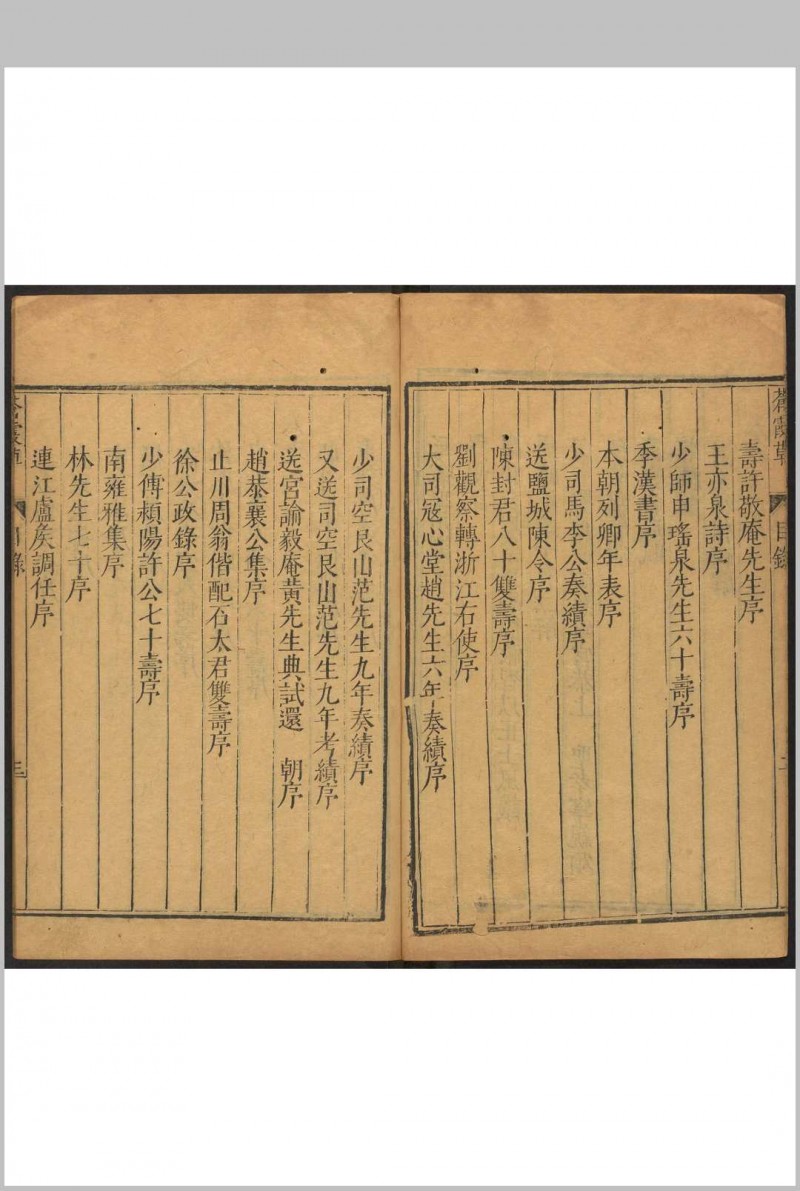 蒼霞草
目錄
二
壽許敬庵先生序
王亦泉詩序
少師申瑤泉先生六十壽序
季漢書序
本朝列卿年表序
少司馬李公奏績序
送鹽城陳令序
陳封君八十雙壽序
劉觀察轉浙江右使序
大司寇心堂趙先生六年奏績序
少司空艮山范先生九年奏績序
又送司空艮山范先生九年考績序
送宮諭毅庵黃先生典試還 朝序
趙恭襄公集序
止川周翁偕配石太君雙壽序
徐公政錄序
少傅頴陽許公七十壽序
南雍雅集序
林先生七十序
連江盧侯調任序
蒼霞草
目錄
三